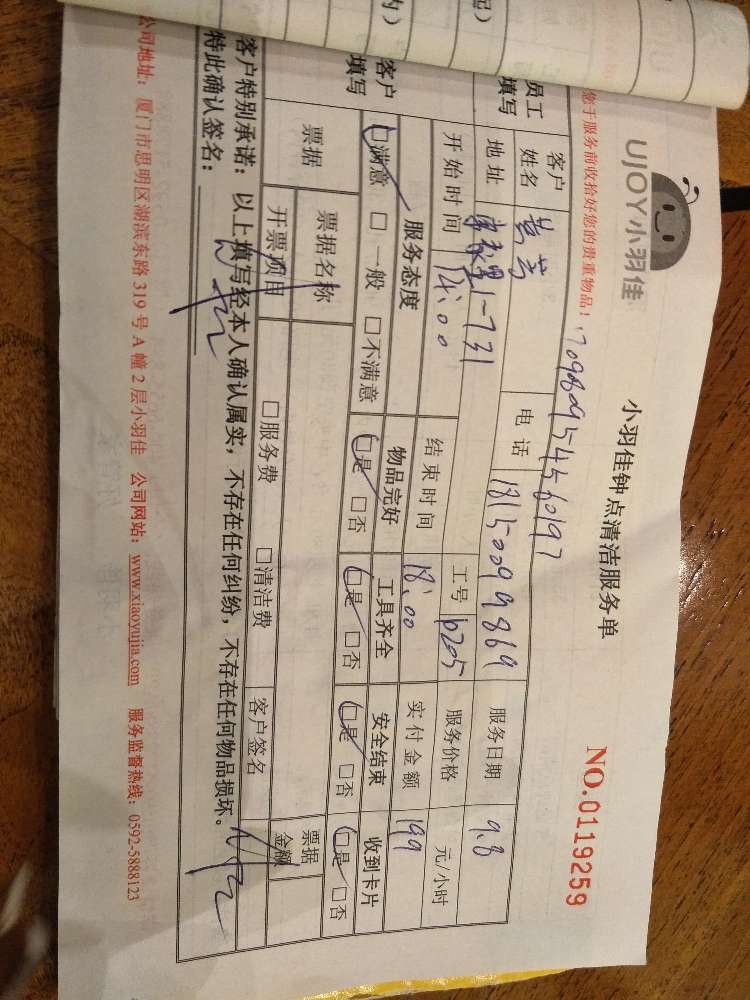 UJOY小羽佳
小羽佳钟点清洁服务单
NO.0119259
您于服务前收拾好您的贵重物品！
员工填写
客户姓名
电话 18150099869
服务日期 9.8
地址 1-731
工号 6205
服务价格 元/小时
开始时间 14:00
结束时间 18:00
实付金额 199
客户填写
服务态度 物品完好 工具齐全 安全结束 收到卡片
☑满意 □一般 □不满意 ☑是 □否 ☑是 □否 ☑是 □否 ☑是 □否
票据
票据名称
票据金额
开票项目 □服务费 □清洁费
客户签名
客户特别承诺：以上填写经本人确认属实，不存在任何纠纷，不存在任何物品损坏。
特此确认签名：
公司地址：厦门市思明区湖滨东路319号A幢2层小羽佳 公司网站：www.xiaoyujia.com 服务监督热线：0592-5888123